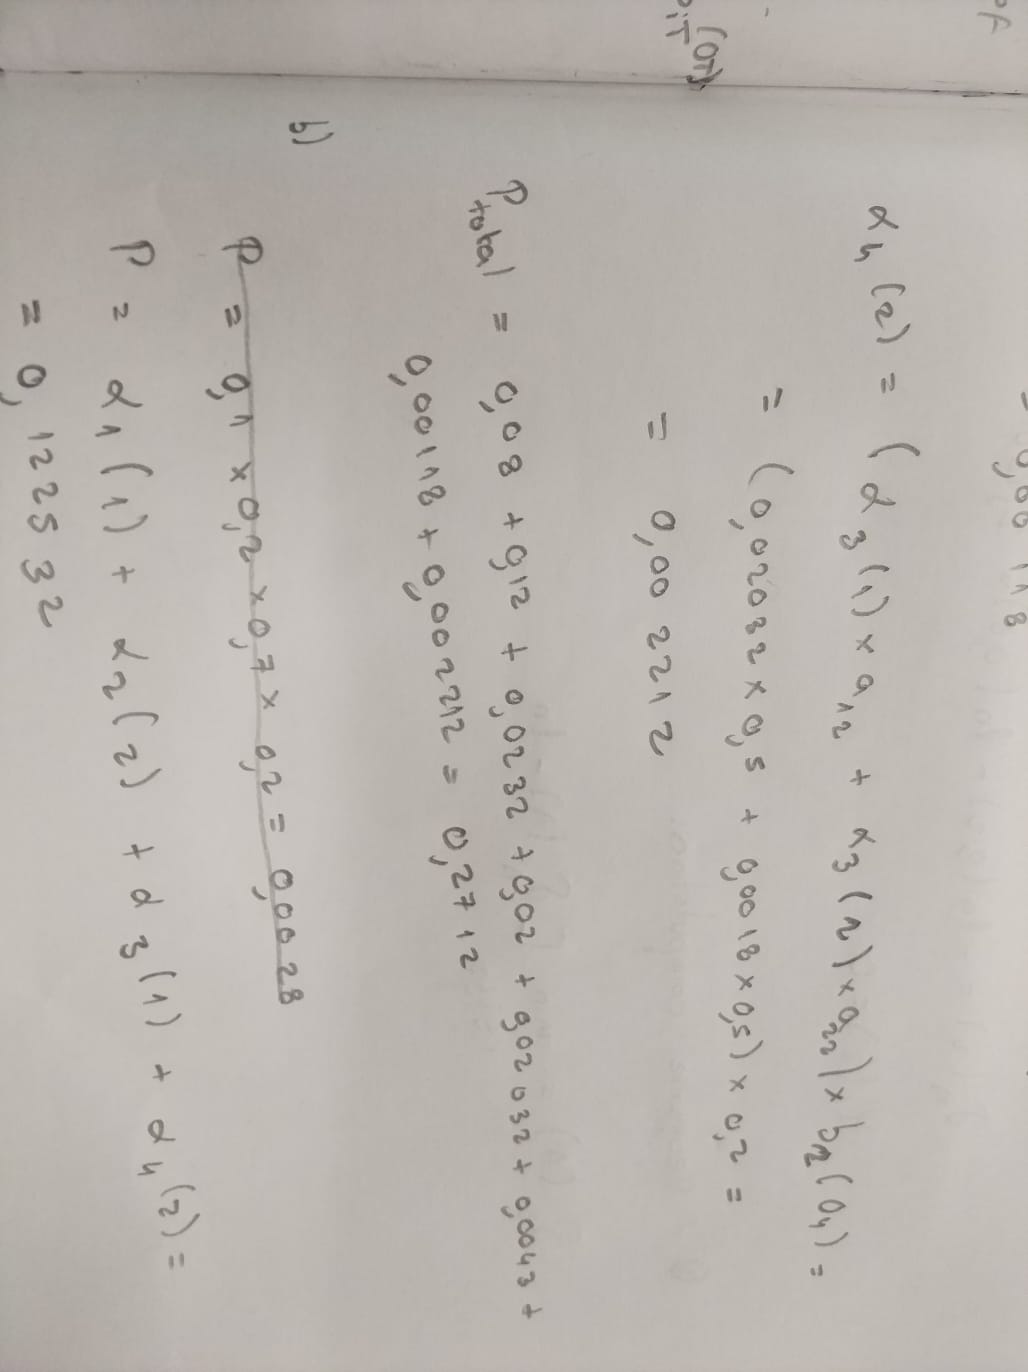 0,00118
α4(2) = (α3(1) × a12 + α3(2) × a22) × b2(O4) =
= (0,02032 × 0,5 + 0,0018 × 0,5) × 0,2 =
= 0,002212
Ptotal = 0,08 + 0,12 + 0,0232 + 0,02 + 0,02032 + 0,0043 +
0,00118 + 0,002212 = 0,2712
b)
P = 0,1 × 0,2 × 0,7 × 0,2 = 0,0028
P = α1(1) + α2(2) + α3(1) + α4(2) =
= 0,122532